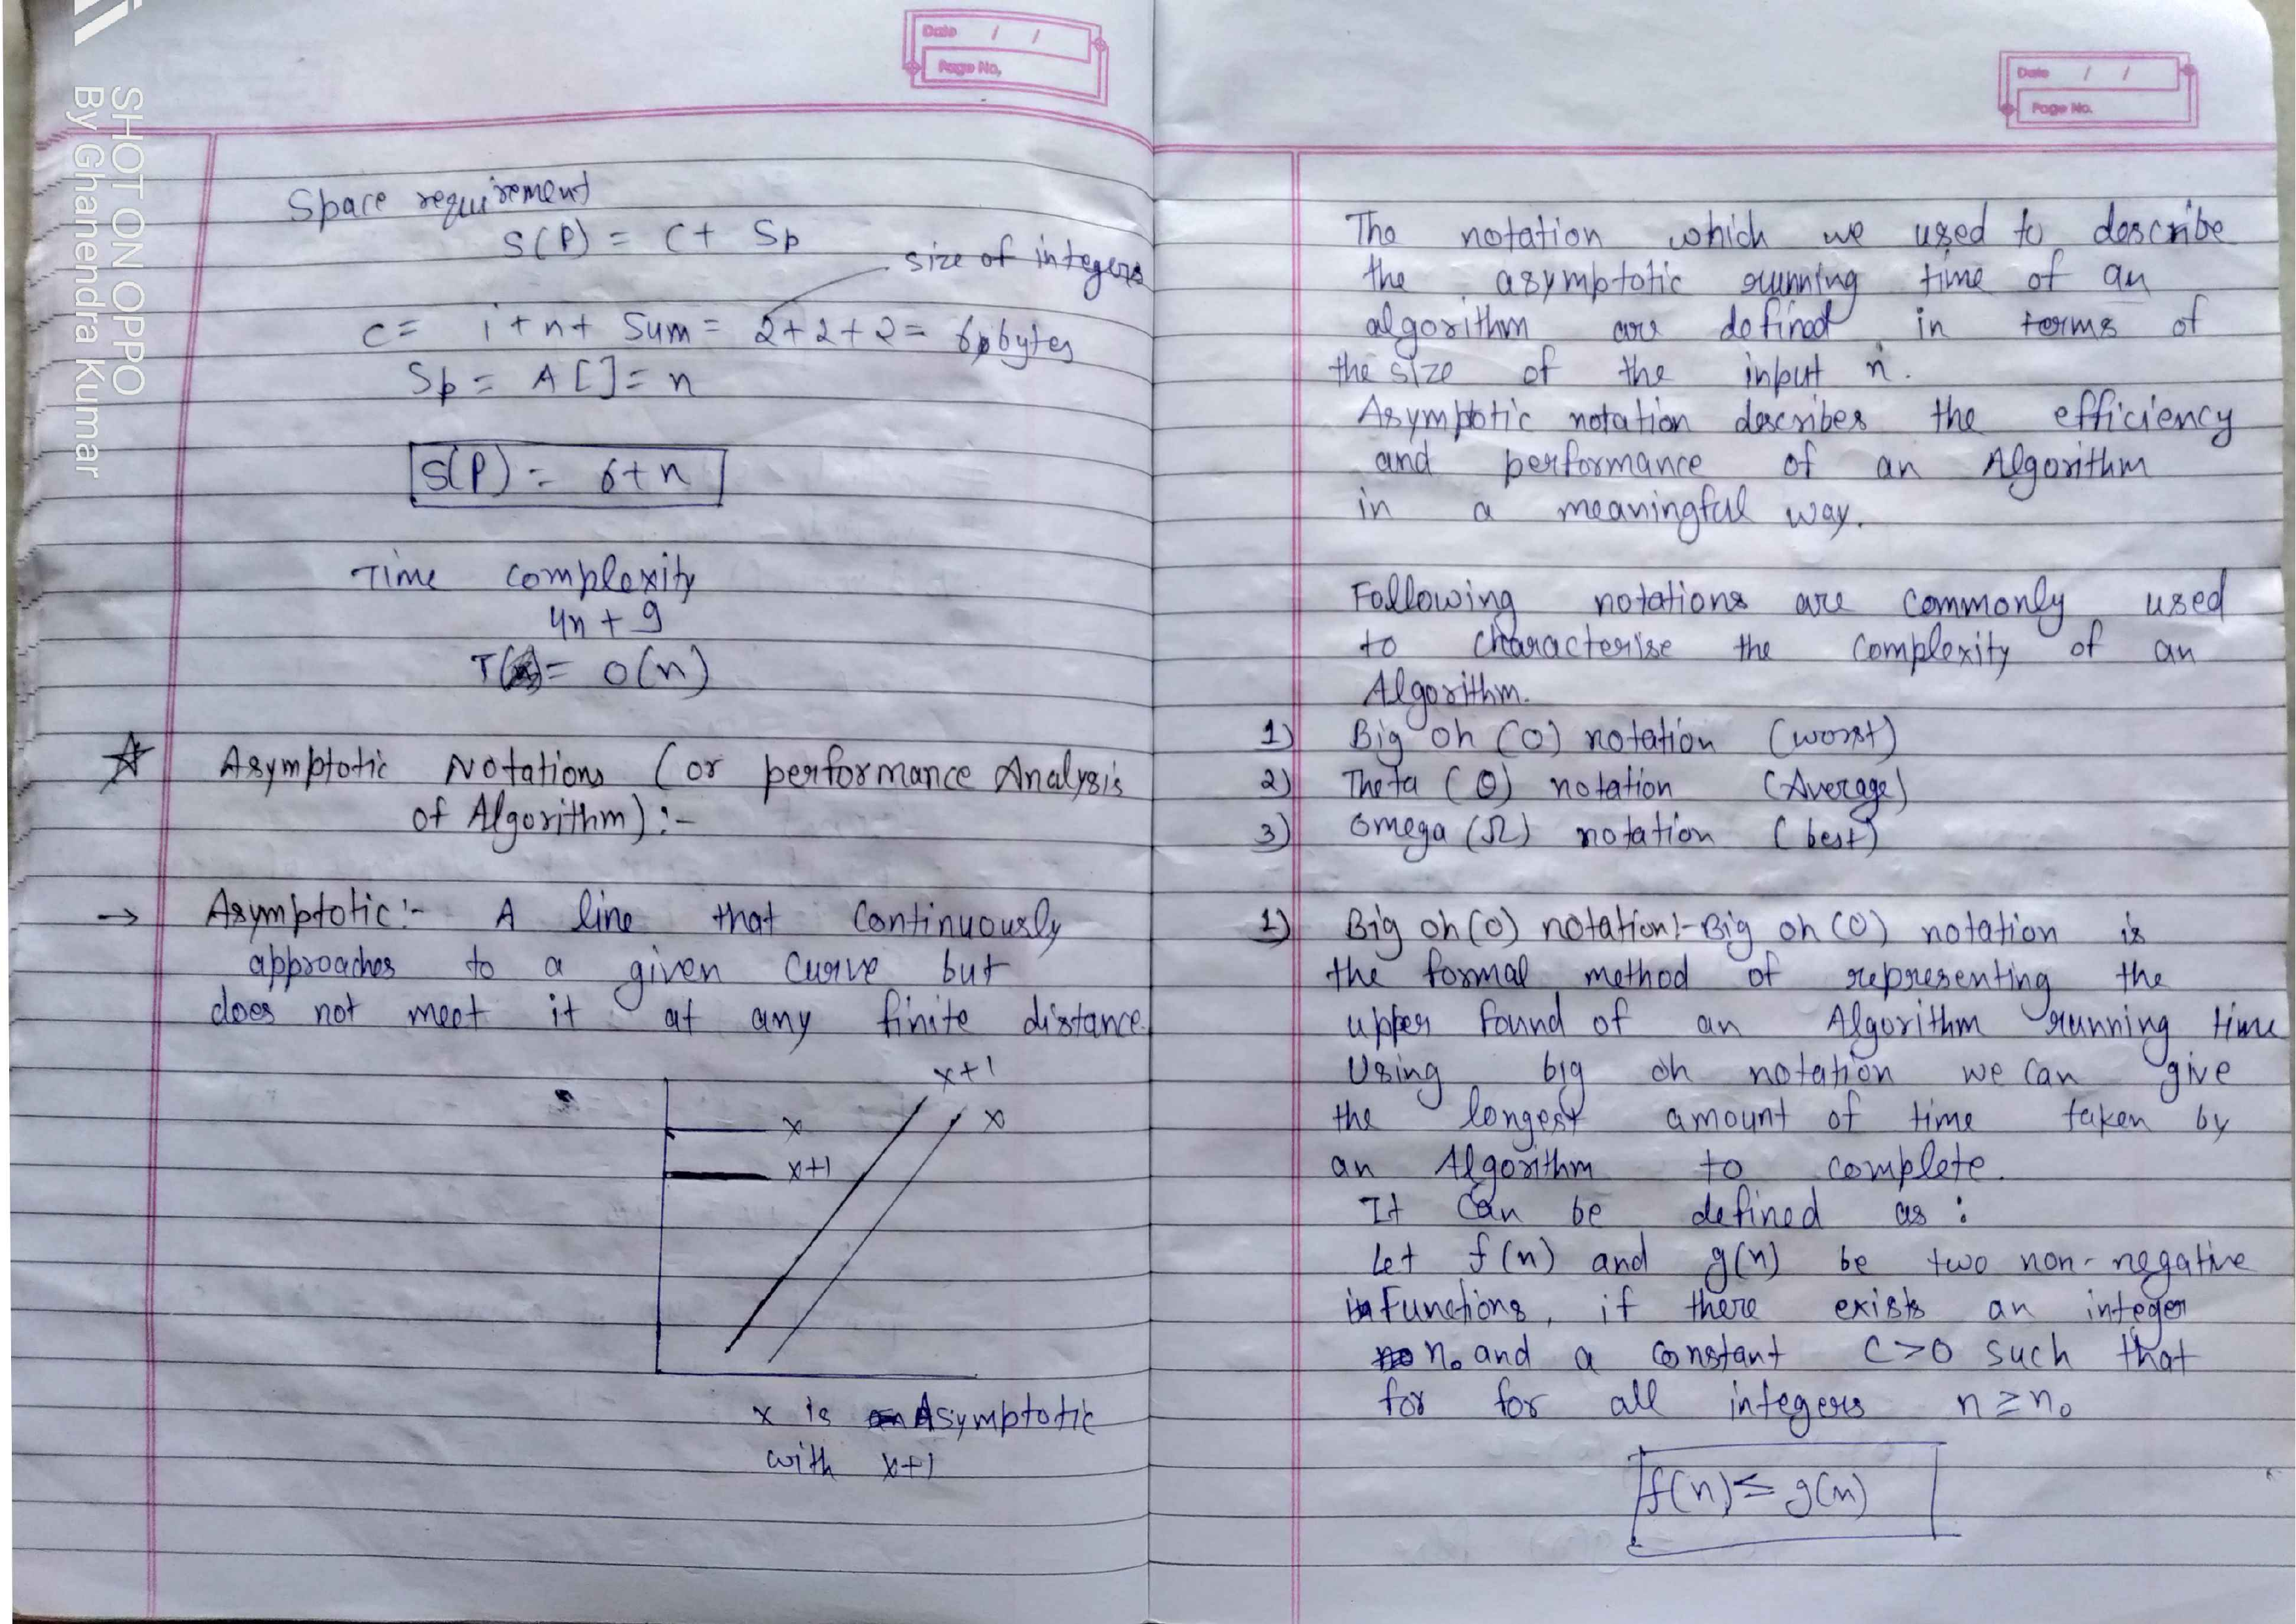 SHOT ON OPPO
By Ghanendra Kumar
Date / /
Page No,
Space requirement
S(P) = C+ Sp
size of integers
C= i+n+ Sum = 2+2+2= 6 bytes
Sp = A[]= n
S(P) = 6+n
Time complexity
4n + 9
T( )= O(n)
☆ Asymptotic Notations (or performance Analysis
of Algorithm) :-
→ Asymptotic:- A line that Continuously
approaches to a given Curve but
does not meet it at any finite distance.
x+1
x
x
x+1
x is Asymptotic
with x+1
Date / /
Page No.
The notation which we used to describe
the asymptotic running time of an
algorithm are defined in terms of
the size of the input n.
Asymptotic notation describes the efficiency
and performance of an Algorithm
in a meaningful way.
Following notations are commonly used
to characterise the complexity of an
Algorithm.
1) Big oh (O) notation (worst)
2) Theta (Θ) notation (Average)
3) Omega (Ω) notation (best)
1) Big oh(O) notation:- Big oh (O) notation is
the formal method of representing the
upper found of an Algorithm running time
Using big oh notation we can give
the longest amount of time taken by
an Algorithm to complete.
It Can be defined as :
Let f(n) and g(n) be two non-negative
Functions, if there exists an integer
n₀ and a constant C>0 such that
for for all integers n ≥ n₀
f(n) ≤ g(n)